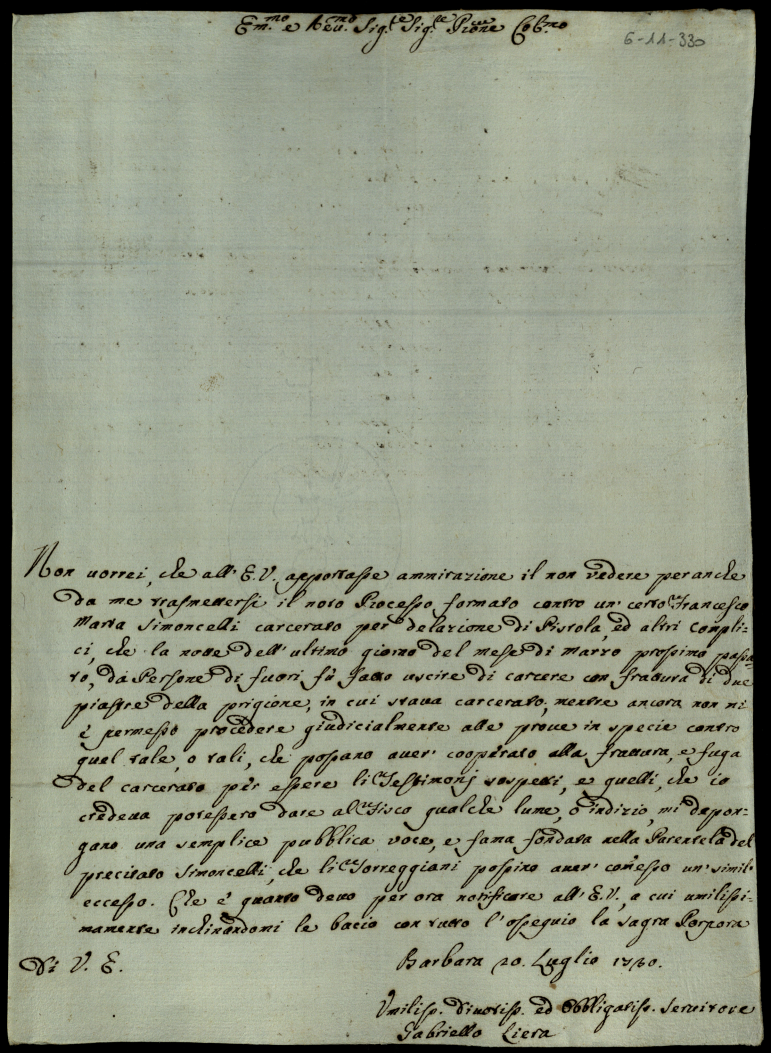 Em.mo e Rev.mo Sig.re Sig.re P̃rone Col.mo
6-11-330
Non vorrei, che all' E.V. apportasse ammirazione il non vedere peranche
da me trasmettersi il noto Processo formato contro un' certo Francesco
Maria Simoncelli carcerato per delazione di Pistola, ed altri Compli-
ci, che la notte dell' ultimo giorno del mese di Marzo prossimo passa-
to, da Persone di fuori fù fatto uscire di carcere con frattura di due
piastre della prigione, in cui stava carcerato, mentre ancora non mi
è permesso procedere giudicialmente alle prove in specie contro
quel tale, o tali, che possano aver' cooperato alla frattura, e fuga
del carcerato per essere li Testimonij sospetti, e quelli, che io
credeva potessero dare al Fisco qualche lume, o indizio, mi depon-
gano una semplice pubblica voce, e fama fondata nella Parentela del
precitato Simoncelli, che li Torreggiani possino aver' com̃esso un' simil'
eccesso. Che è quanto devo per ora notificare all' E.V., a cui umilissi-
mamente inchinandomi le bacio con tutto l' ossequio la sagra Porpora
Di V. E.
Barbara 20. Luglio 1780.
Umiliss. Divotiss. ed Obbligatiss. Servitore
Gabriello Liera